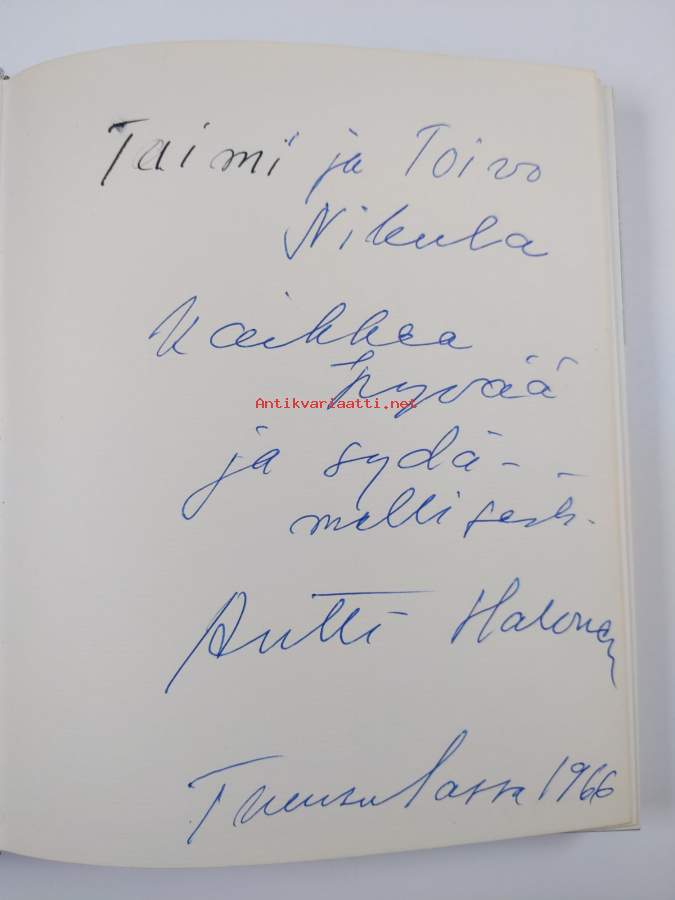 Taimi ja Toivo
Nikula
Kaikkea
hyvää
Antikvariaatti.net
ja sydä-
mellisesti.
Antti Halonen
Tuusulassa 1966